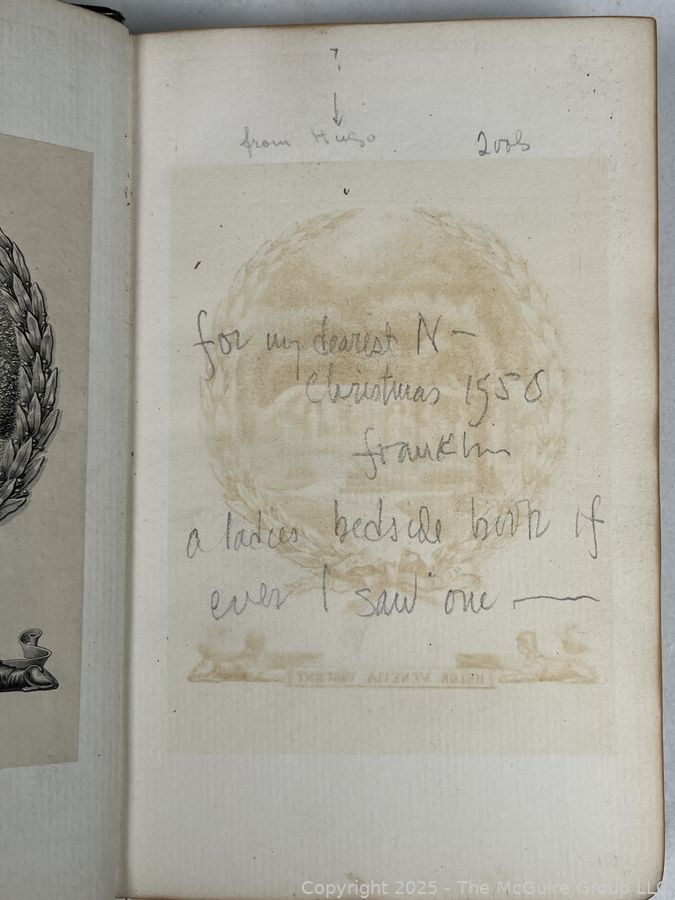 from Hugo 2005
for my dearest N —
Christmas 1956
franklin
a ladies bedside book if
ever I saw one —
HELEN VENETIA VINCENT
Copyright 2025 - The McGuire Group LLC